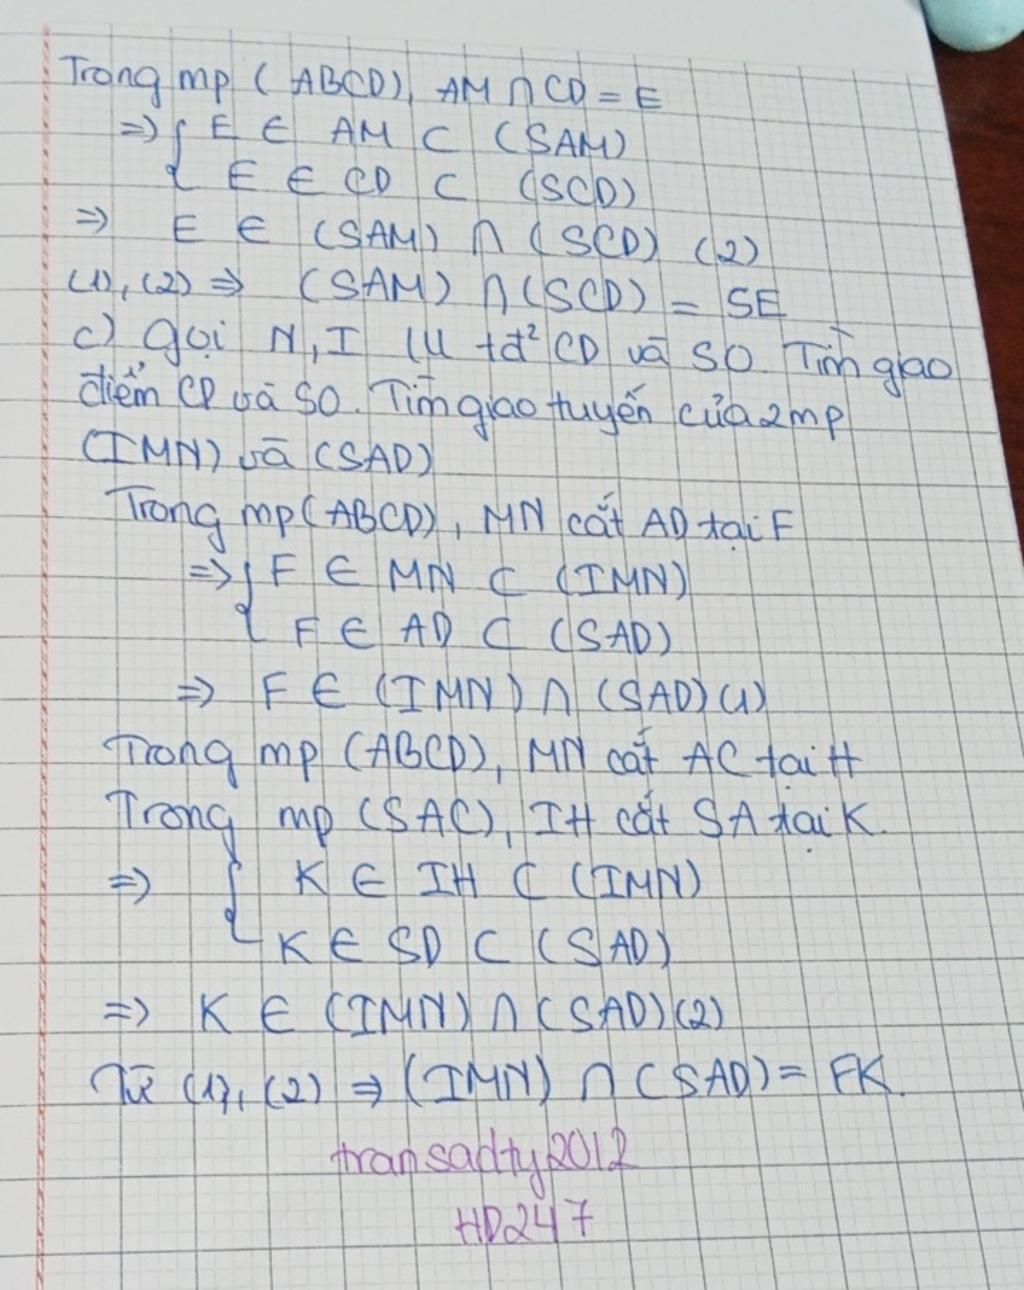 Trong mp (ABCD), AM ∩ CD = E
=> { E ∈ AM ⊂ (SAM)
E ∈ CD ⊂ (SCD)
=> E ∈ (SAM) ∩ (SCD) (2)
(1), (2) => (SAM) ∩ (SCD) = SE
c) gọi N, I lll tđ² CD và SO. Tìm giao
điểm CD và SO. Tìm giao tuyến của 2mp
(IMN) và (SAD)
Trong mp (ABCD), MN cắt AD tại F
=> { F ∈ MN ⊂ (IMN)
F ∈ AD ⊂ (SAD)
=> F ∈ (IMN) ∩ (SAD) (1)
Trong mp (ABCD), MN cắt AC tại H
Trong mp (SAC), IH cắt SA tại K.
=> { K ∈ IH ⊂ (IMN)
K ∈ SD ⊂ (SAD)
=> K ∈ (IMN) ∩ (SAD) (2)
Từ (1), (2) => (IMN) ∩ (SAD) = FK.
transadty2012
HD247